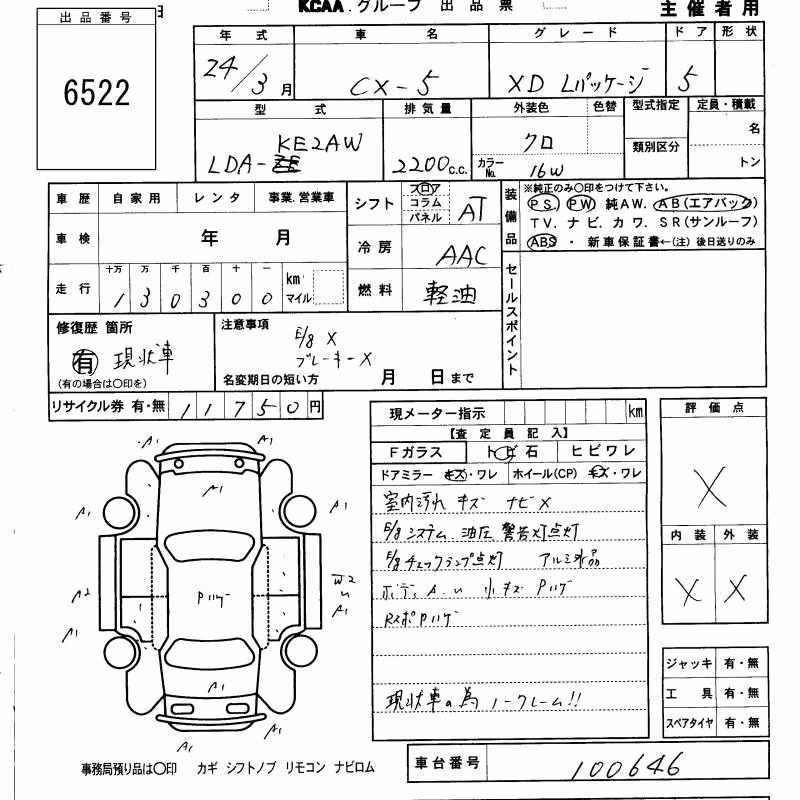 KCAA.グループ 出品票
主催者用
出品番号 日
6522
年式 車名 グレード ドア 形状
24/3月 CX-5 XD Lパッケージ 5
型式 排気量 外装色 色替 型式指定 定員・積載
KE2AW 名
LDA- 2200c.c. クロ 類別区分
カラーNo. 16W トン
車歴 自家用 レンタ 事業.営業車
シフト フロア コラム パネル AT
装備品 ※純正のみ○印をつけて下さい。
PS. PW 純AW. AB(エアバッグ)
TV. ナビ. カワ. SR(サンルーフ)
ABS ・ 新車保証書←(注) 後日送りのみ
車検 年 月
冷房 AAC
走行 十万 万 千 百 十 一 km マイル
130300
燃料 軽油
セールスポイント
修復歴 箇所
有 現状車
(有の場合は○印を)
注意事項
E/g X
ブレーキ-X
名変期日の短い方 月 日まで
リサイクル券 有・無 11750円
現メーター指示 km
【査定員記入】
Fガラス トビ石 ヒビワレ
ドアミラー キズ・ワレ ホイール(CP) キズ・ワレ
室内汚れ キズ ナビX
E/gシステム 油圧 警告灯点灯
E/gチェックランプ点灯 アルミ
ボディA.U 小キズ Pハゲ
RスポPハゲ
現状車の為 ノークレーム!!
評価点
X
内装 外装
X X
ジャッキ 有・無
工具 有・無
スペアタイヤ 有・無
車台番号 100646
A1 A1
A1
A1 A1
A2 Pハゲ W2 U A1
A1
A1
A1 A1
事務局預り品は○印 カギ シフトノブ リモコン ナビロム